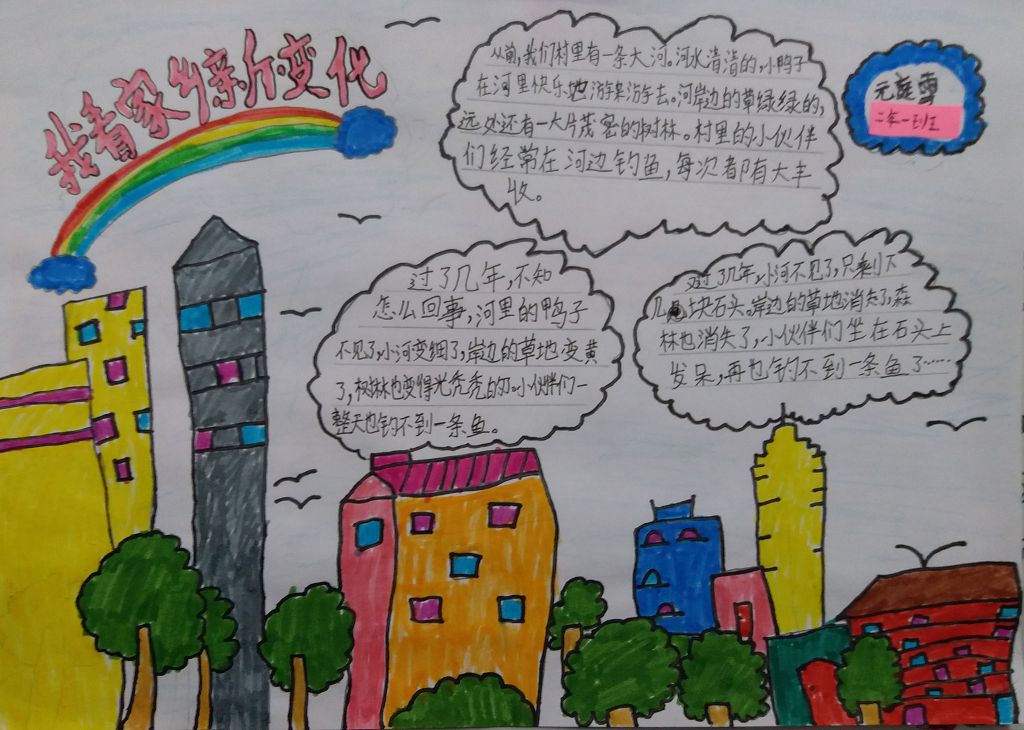 我看家乡新变化
从前,我们村里有一条大河。河水清清的,小鸭子
在河里快乐地游来游去。河岸边的草绿绿的,
远处还有一大片茂密的树林。村里的小伙伴
们经常在河边钓鱼,每次都有大丰
收。
元庭雪
二年一班
过了几年,不知
怎么回事,河里的鸭子
不见了,小河变细了,岸边的草地变黄
了,树林也变得光秃秃的。小伙伴们一
整天也钓不到一条鱼。
过了几年,小河不见了,只剩下
几块石头。岸边的草地消失了,森
林也消失了,小伙伴们坐在石头上
发呆,再也钓不到一条鱼了……